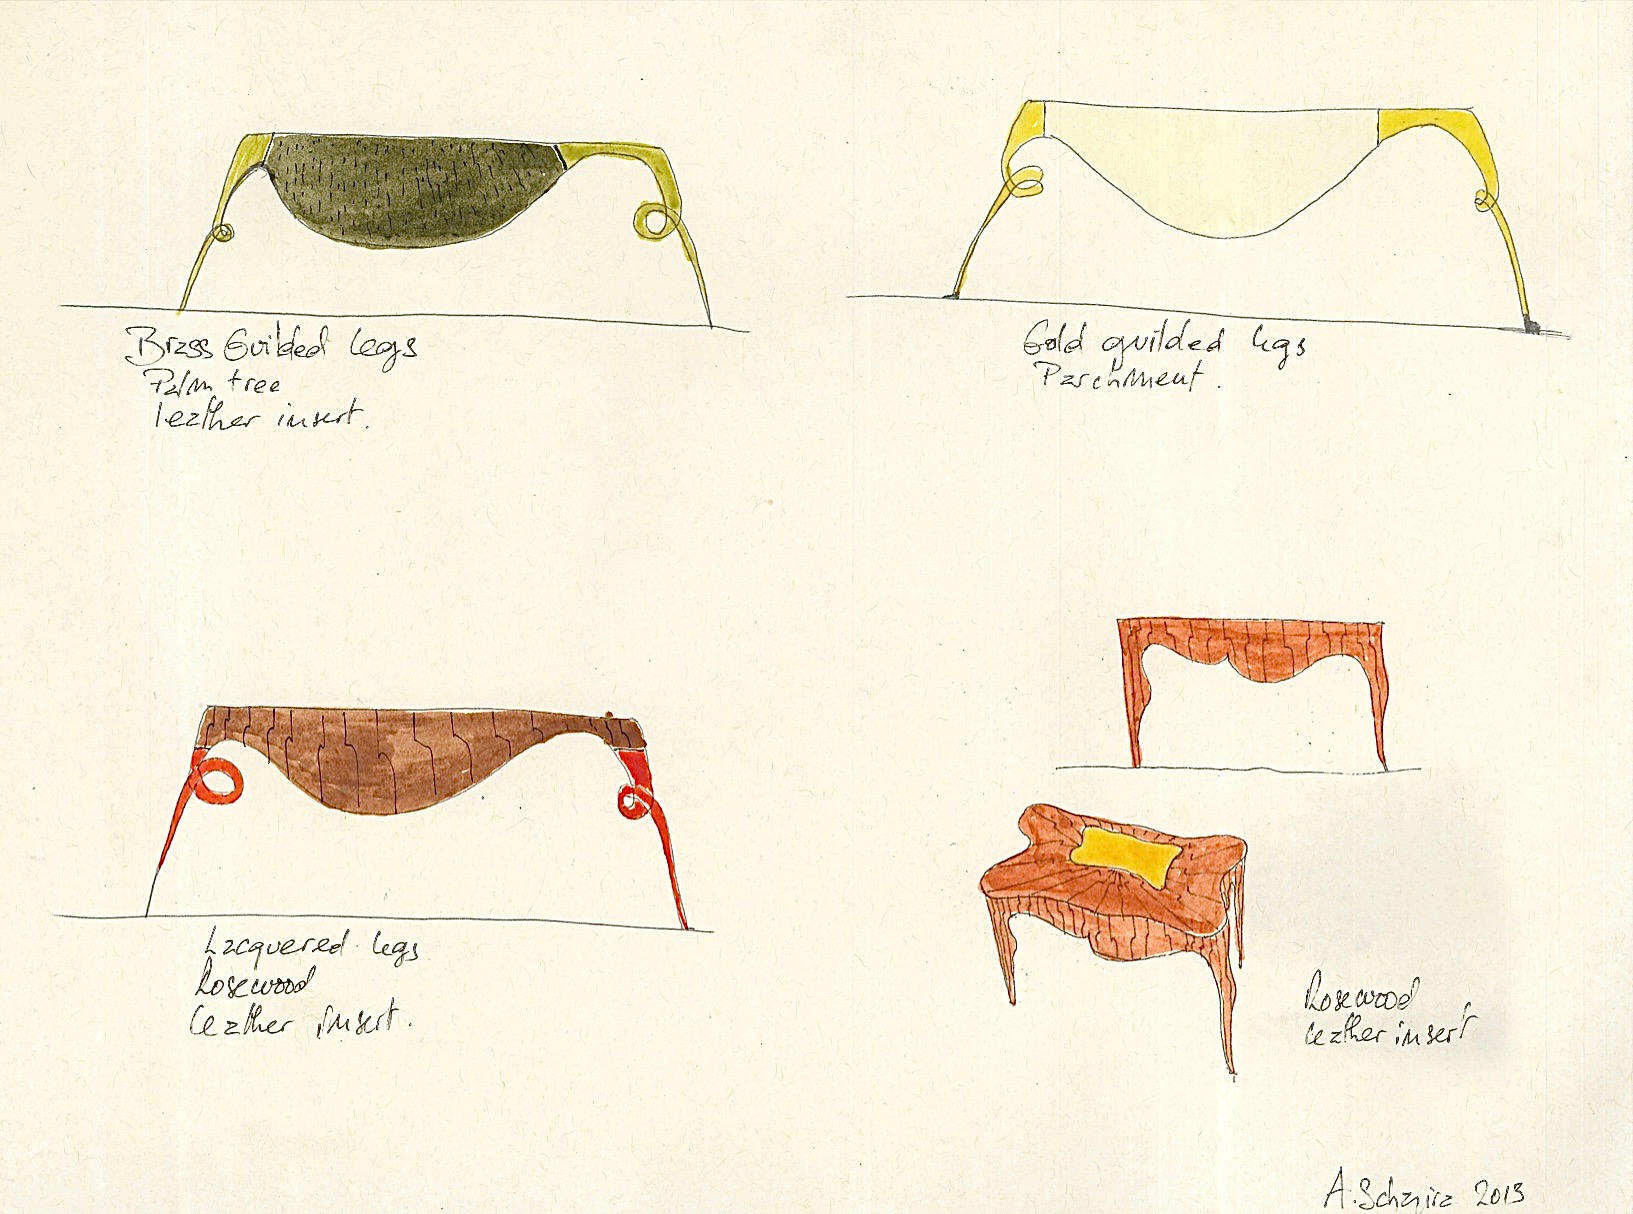 Brass Guilded legs
Palm tree
leather insert.
Gold guilded legs
Parchment.
Lacquered legs
Rosewood
leather insert.
Rosewood
leather insert
A. 2013